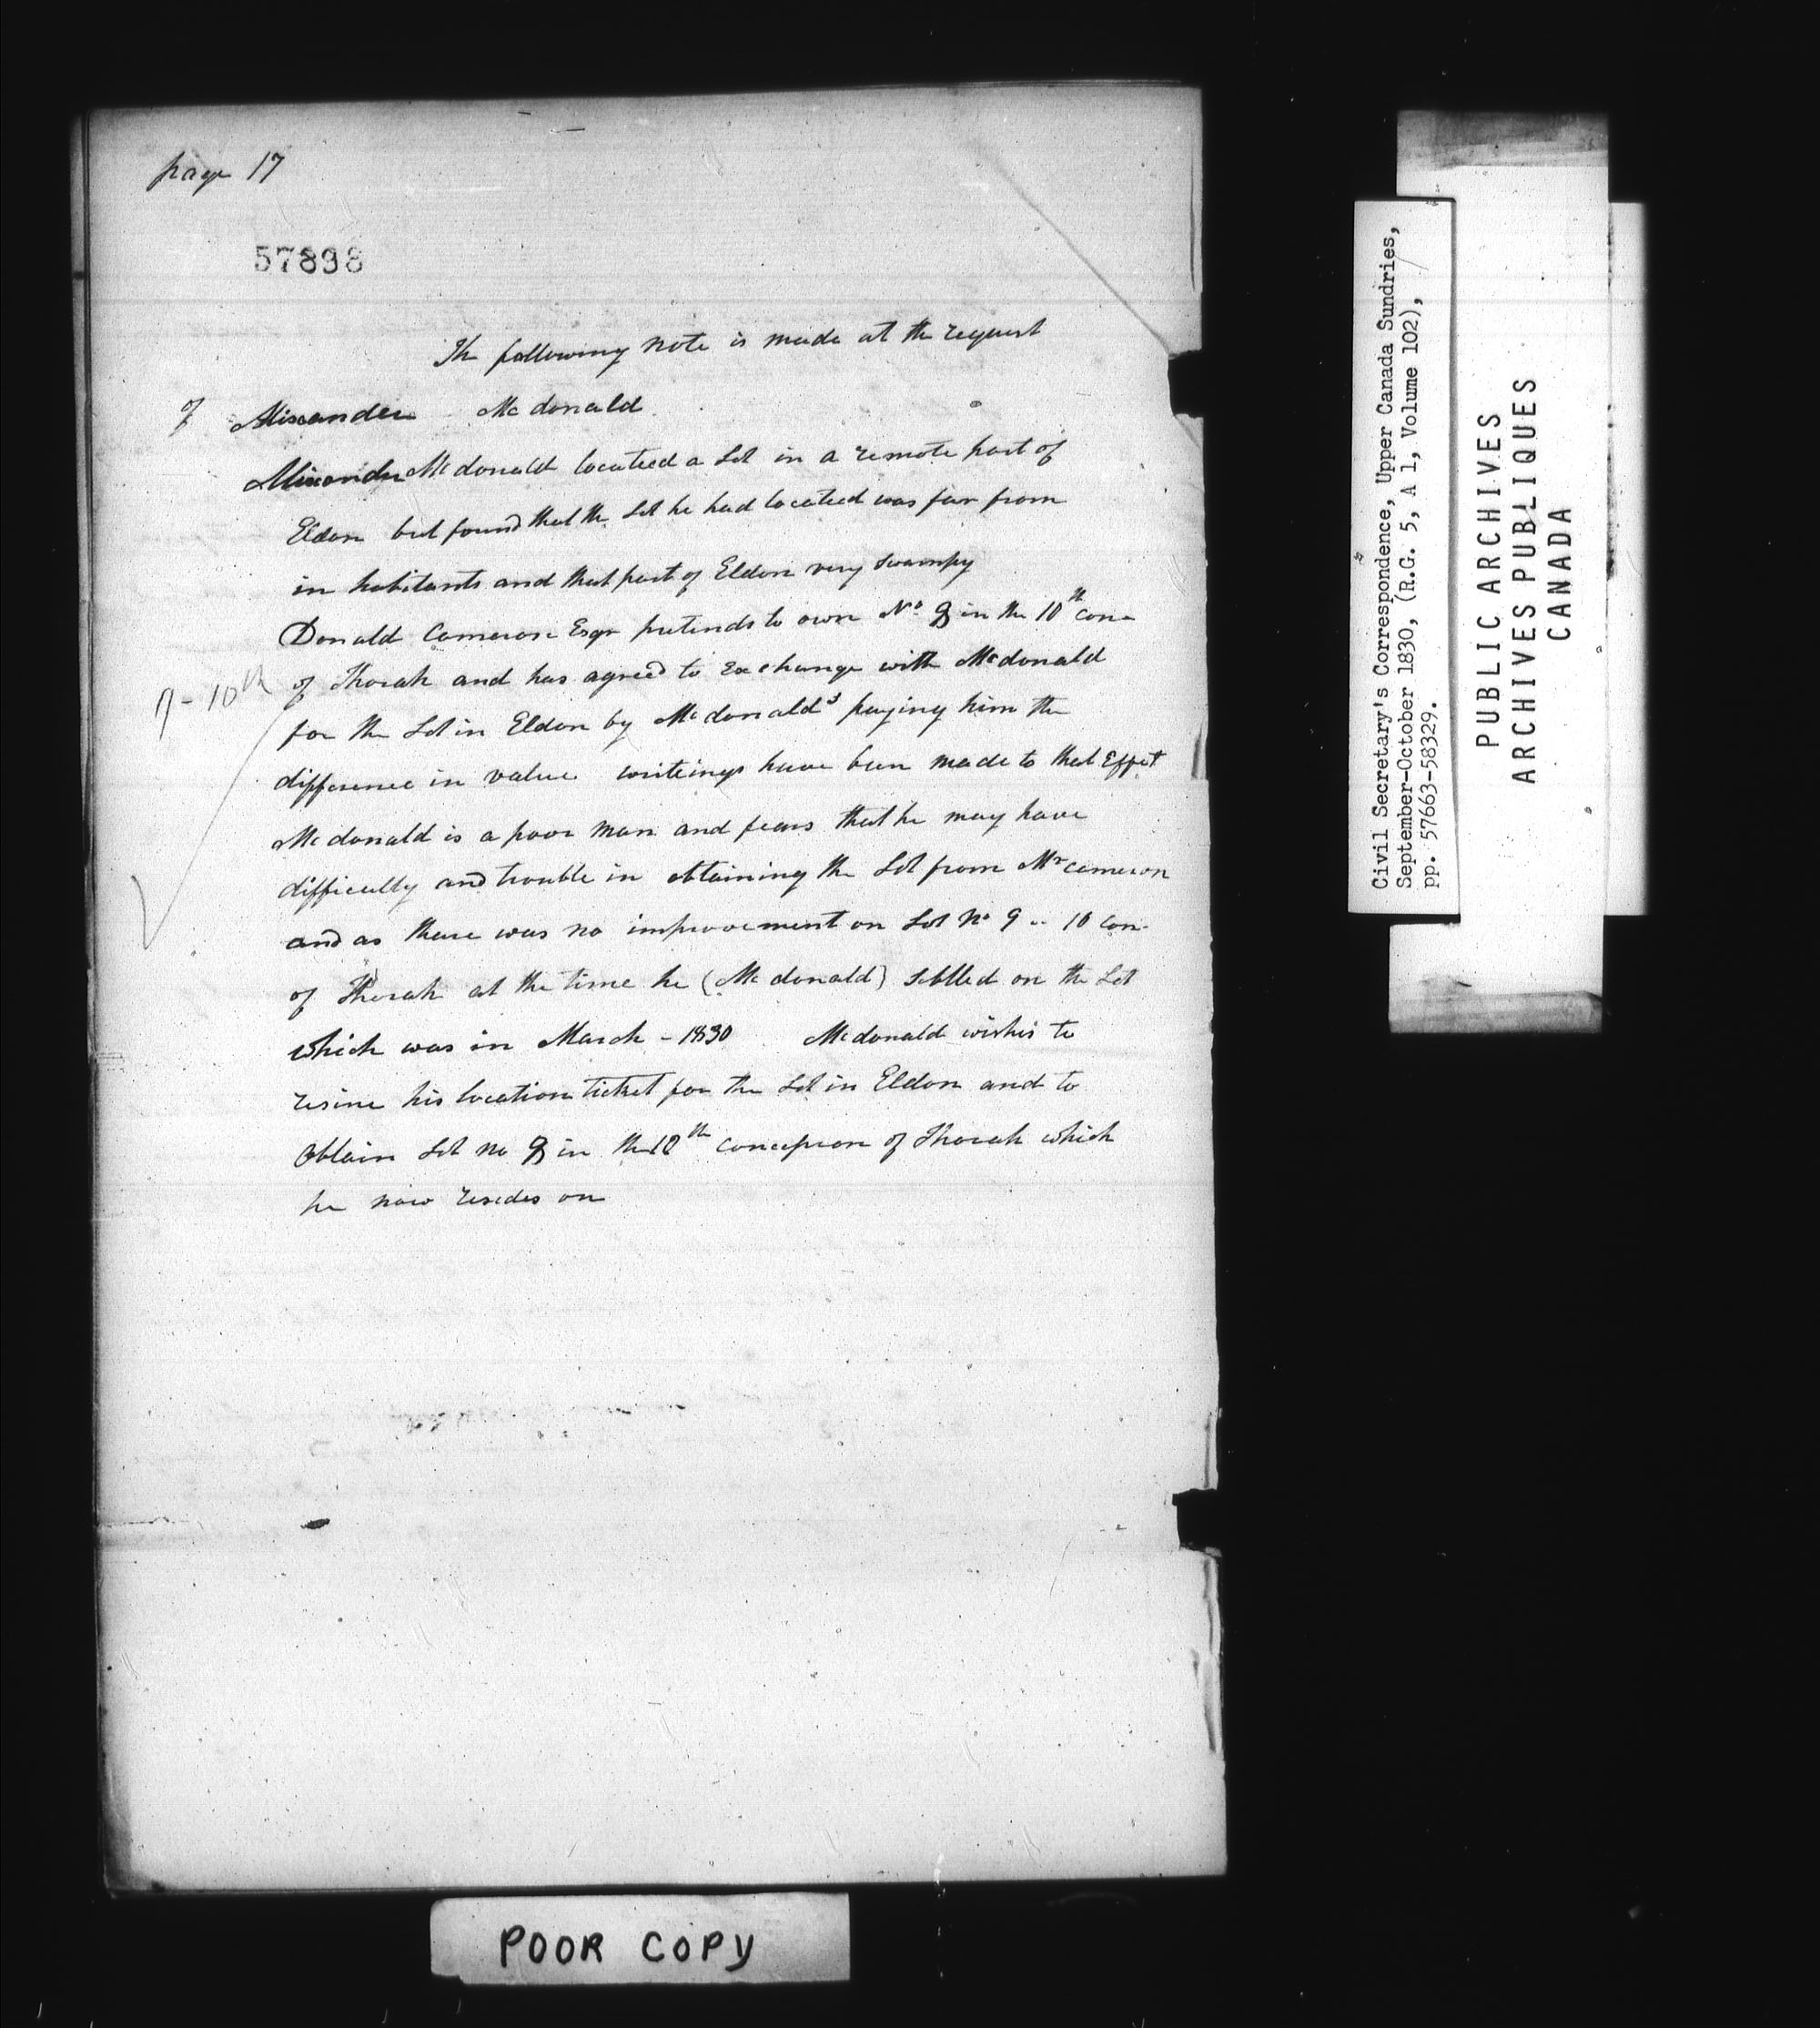 page 17
57898
The following note is made at the request
of Alixander Mcdonald
Alixander Mcdonald located a Lot in a remote part of
Eldon but found that the Lot he had located was far from
in habitants and that part of Eldon very swampy
Donald Cameron Esqr pretends to own No 9 in the 10th con
of Thorah and has agreed to Exchange with Mcdonald
9 - 10th
for the Lot in Eldon by Mcdonalds paying him the
difference in value writeings have been made to that Effect
Mcdonald is a poor man and fears that he may have
difficulty and trouble in obtaining the Lot from Mr Cameron
and as there was no improvement on Lot No 9 .. 10 con.
of Thorah at the time he (Mcdonald) settled on the Lot
which was in March - 1830 Mcdonald wishes to
resine his location ticket for the Lot in Eldon and to
obtain Lot no 9 in the 10th concession of Thorah which
he now resides on
POOR COPY
Civil Secretary's Correspondence, Upper Canada Sundries,
September-October 1830, (R.G. 5, A 1, Volume 102),
pp. 57663-58329.
PUBLIC ARCHIVES
ARCHIVES PUBLIQUES
CANADA